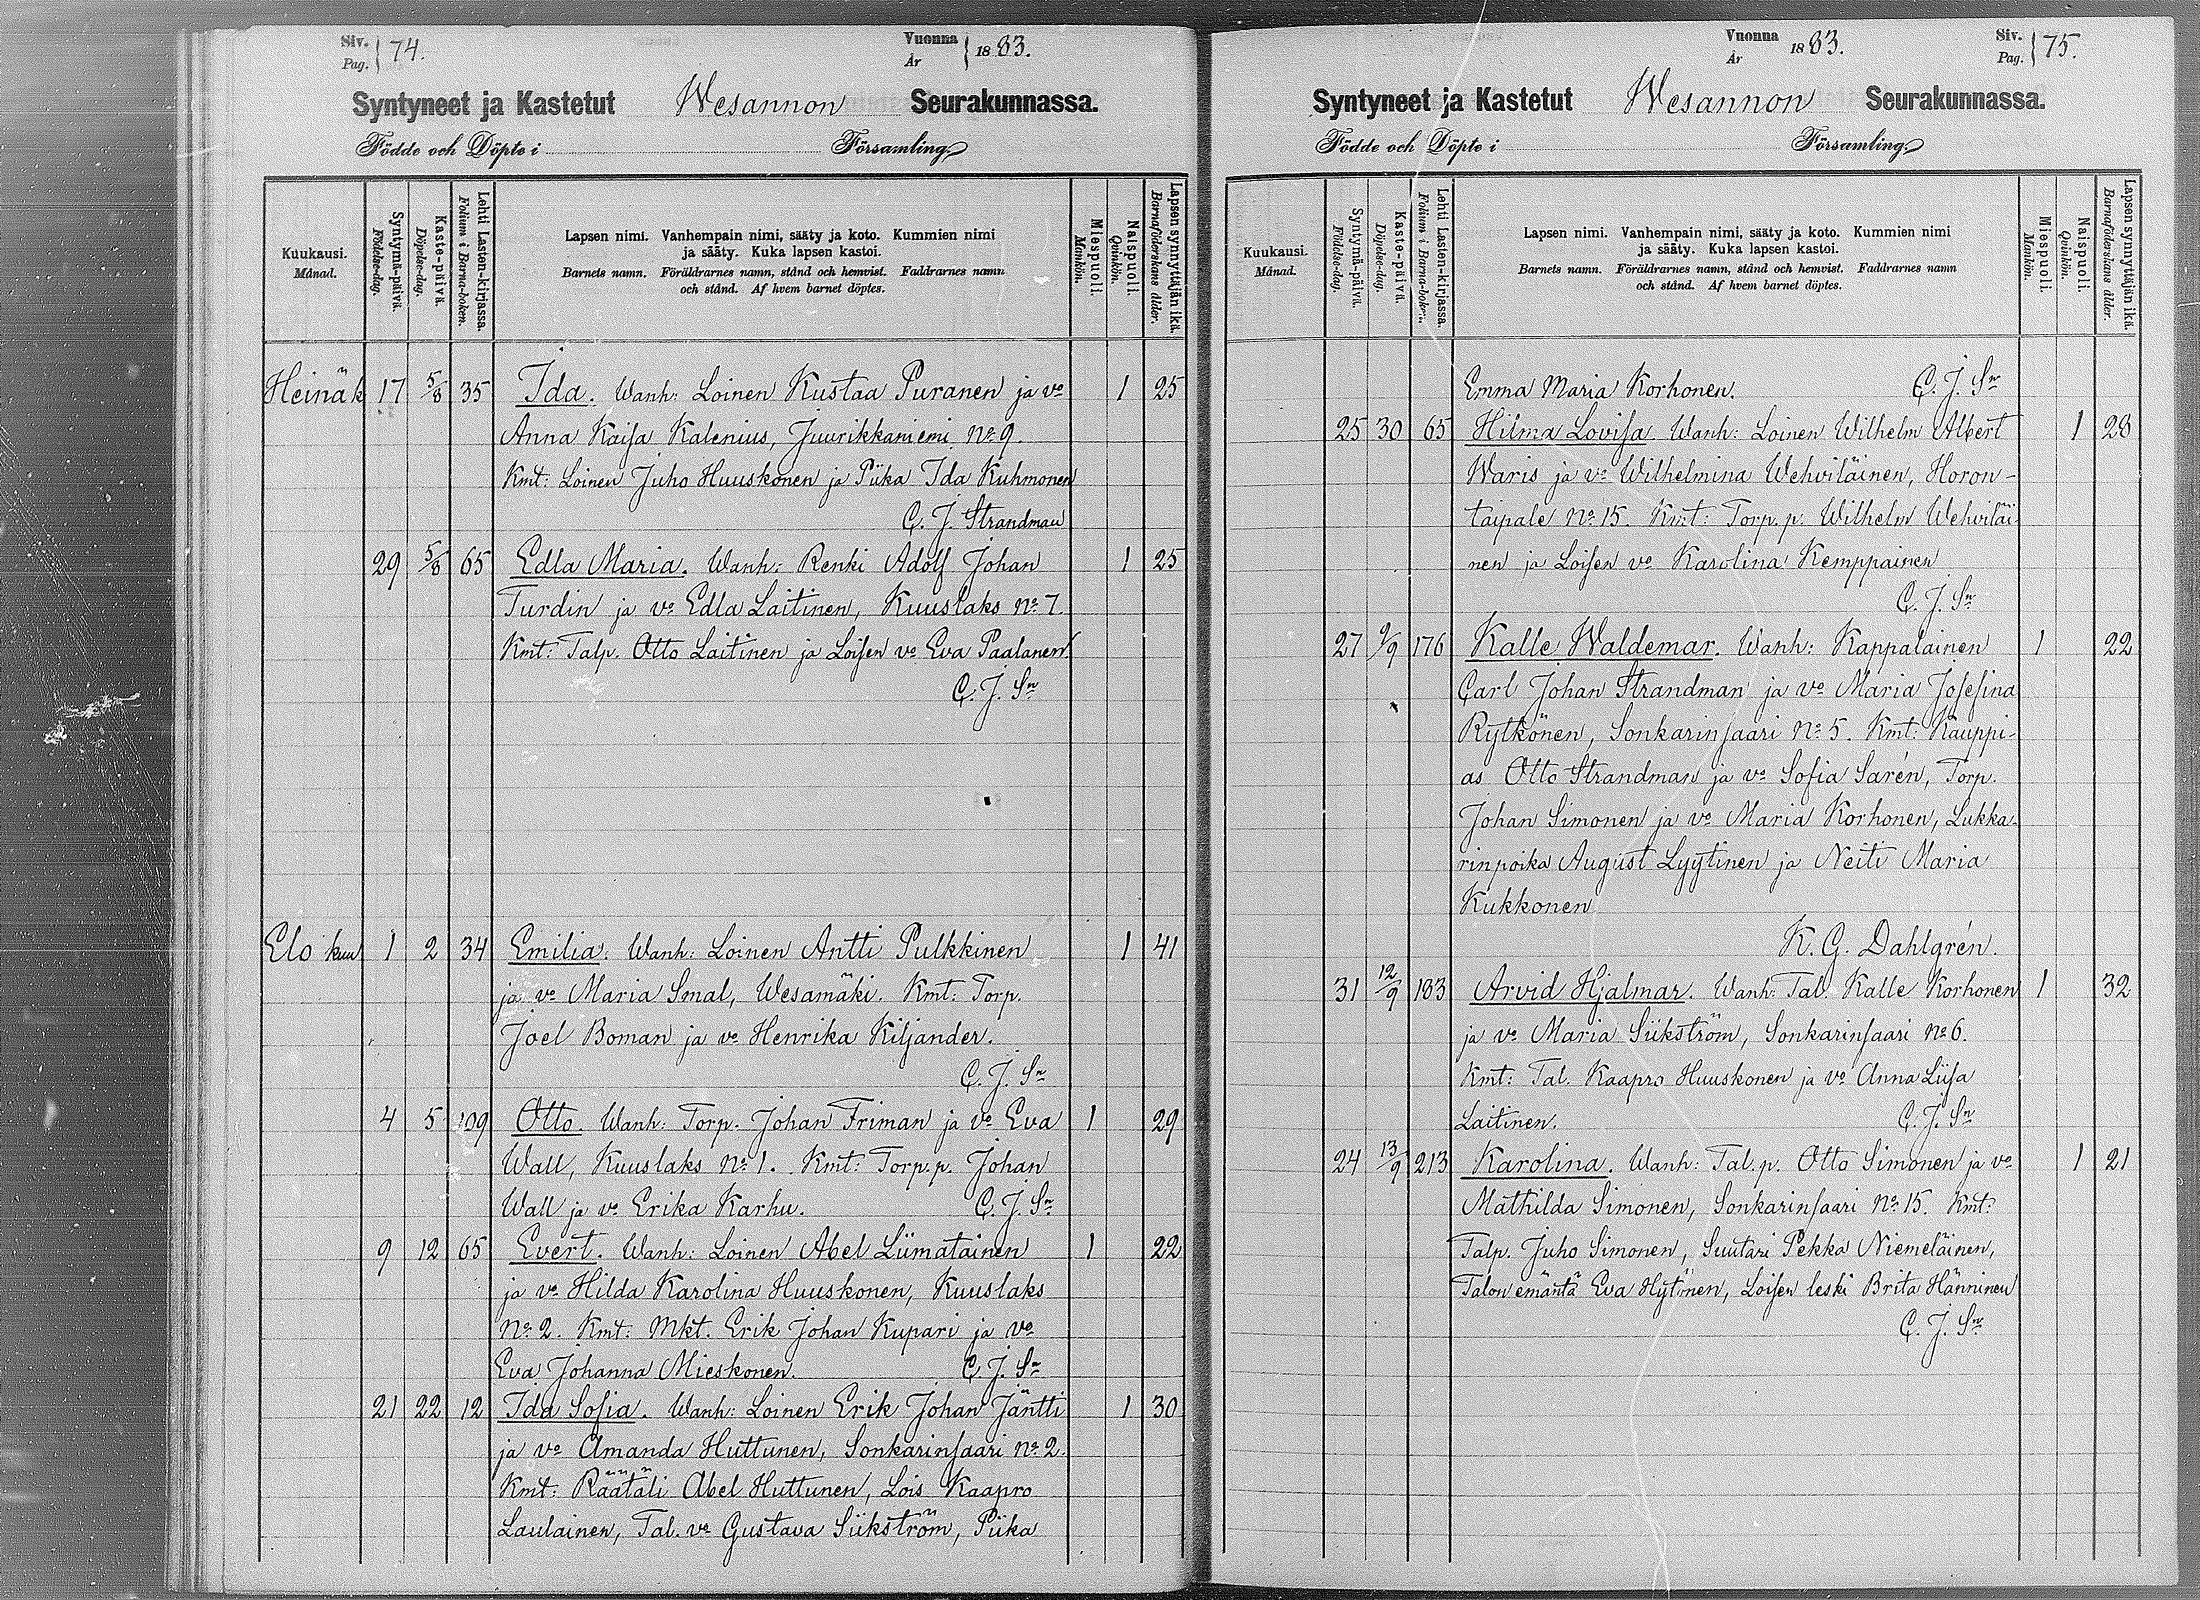 Siv. Pag. 74.
Vuonna År 1883.
Syntyneet ja Kastetut Wesannon Seurakunnassa.
Födde och Döpte i Församling.
Kuukausi. Månad.
Syntymä-päivä. Födelse-dag.
Kaste-päivä. Döpelse-dag.
Lehti Lasten-kirjassa. Folium i Barna-boken.
Lapsen nimi. Vanhempain nimi, sääty ja koto. Kummien nimi
ja sääty. Kuka lapsen kastoi.
Barnets namn. Föräldrarnes namn, stånd och hemvist. Faddrarnes namn
och stånd. Af hvem barnet döptes.
Miespuoli. Mankön.
Naispuoli. Qvinkön.
Lapsen synnyttäjän ikä. Barnaföderskans ålder.
Heinäk 17 5/8 35 Ida. Wanh: Loinen Kustaa Puranen ja vo 1 25
Anna Kaisa Kalenius, Juurikkaniemi No 9.
Kmt: Loinen Juho Huuskonen ja Piika Ida Kuhmonen
C. J. Strandman
29 5/8 65 Edla Maria. Wanh: Renki Adolf Johan 1 25
Turdin ja vo Edla Laitinen, Kuuslaks No 7.
Kmt: Talp. Otto Laitinen ja Loisen vo Eva Paalanen.
C. J. Sn
Elo kuu 1 2 34 Emilia. Wanh: Loinen Antti Pulkkinen 1 41
ja vo Maria Smal, Wesamäki. Kmt: Torp.
Joel Boman ja vo Henrika Kiljander.
C. J. Sn
4 5 109 Otto. Wanh: Torp. Johan Friman ja vo Eva 1 29
Wall, Kuuslaks No 1. Kmt: Torp.p. Johan
Wall ja vo Erika Karhu. C. J. Sn
9 12 65 Evert. Wanh: Loinen Abel Liimatainen 1 22
ja vo Hilda Karolina Huuskonen, Kuuslaks
No 2. Kmt: Mkt. Erik Johan Kupari ja vo
Eva Johanna Mieskonen. C. J. Sn
21 22 12 Ida Sofia. Wanh: Loinen Erik Johan Jäntti 1 30
ja vo Amanda Huttunen, Sonkarinsaari No 2.
Kmt: Räätäli Abel Huttunen, Lois Kaapro
Laulainen, Tal. vo Gustava Siikström, Piika
Vuonna År 1883.
Siv. Pag. 75.
Syntyneet ja Kastetut Wesannon Seurakunnassa.
Födde och Döpte i Församling.
Kuukausi. Månad.
Syntymä-päivä. Födelse-dag.
Kaste-päivä. Döpelse-dag.
Lehti Lasten-kirjassa. Folium i Barna-boken.
Lapsen nimi. Vanhempain nimi, sääty ja koto. Kummien nimi
ja sääty. Kuka lapsen kastoi.
Barnets namn. Föräldrarnes namn, stånd och hemvist. Faddrarnes namn
och stånd. Af hvem barnet döptes.
Miespuoli. Mankön.
Naispuoli. Qvinkön.
Lapsen synnyttäjän ikä. Barnaföderskans ålder.
Emma Maria Korhonen. C. J. Sn
25 30 65 Hilma Lovisa. Wanh: Loinen Wilhelm Albert 1 28
Waris ja vo Wilhelmina Wehviläinen, Horon-
taipale No 15. Kmt: Torp. p. Wilhelm Wehviläi-
nen ja Loisen vo Karolina Kemppainen
C. J. Sn
27 2/9 176 Kalle Waldemar. Wanh: Kappalainen 1 22
Carl Johan Strandman ja vo Maria Josefina
Rytkönen, Sonkarinsaari No 5. Kmt: Kauppi-
as Otto Strandman ja vo Sofia Sarén, Torp.
Johan Simonen ja vo Maria Korhonen, Lukka-
rinpoika August Lyytinen ja Neiti Maria
Kukkonen
K. G. Dahlgrén.
31 12/9 183 Arvid Hjalmar. Wanh: Tal. Kalle Korhonen 1 32
ja vo Maria Siikström, Sonkarinsaari No 6.
Kmt: Tal. Kaapro Huuskonen ja vo Anna Liisa
Laitinen. C. J. Sn
24 13/9 213 Karolina. Wanh: Tal.p. Otto Simonen ja vo 1 21
Mathilda Simonen, Sonkarinsaari No 15. Kmt:
Talp. Juho Simonen, Suutari Pekka Niemeläinen,
Talon emäntä Eva Hytönen, Loisen leski Brita Hänninen
C. J. Sn